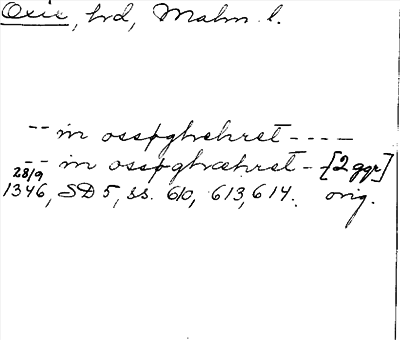 Oxie, hd, Malm. l.
-- in osspghrehret ----
-- in osspghræhret -- [2 ggr]
28/9
1346, SD 5, ss. 610, 613, 614. orig.